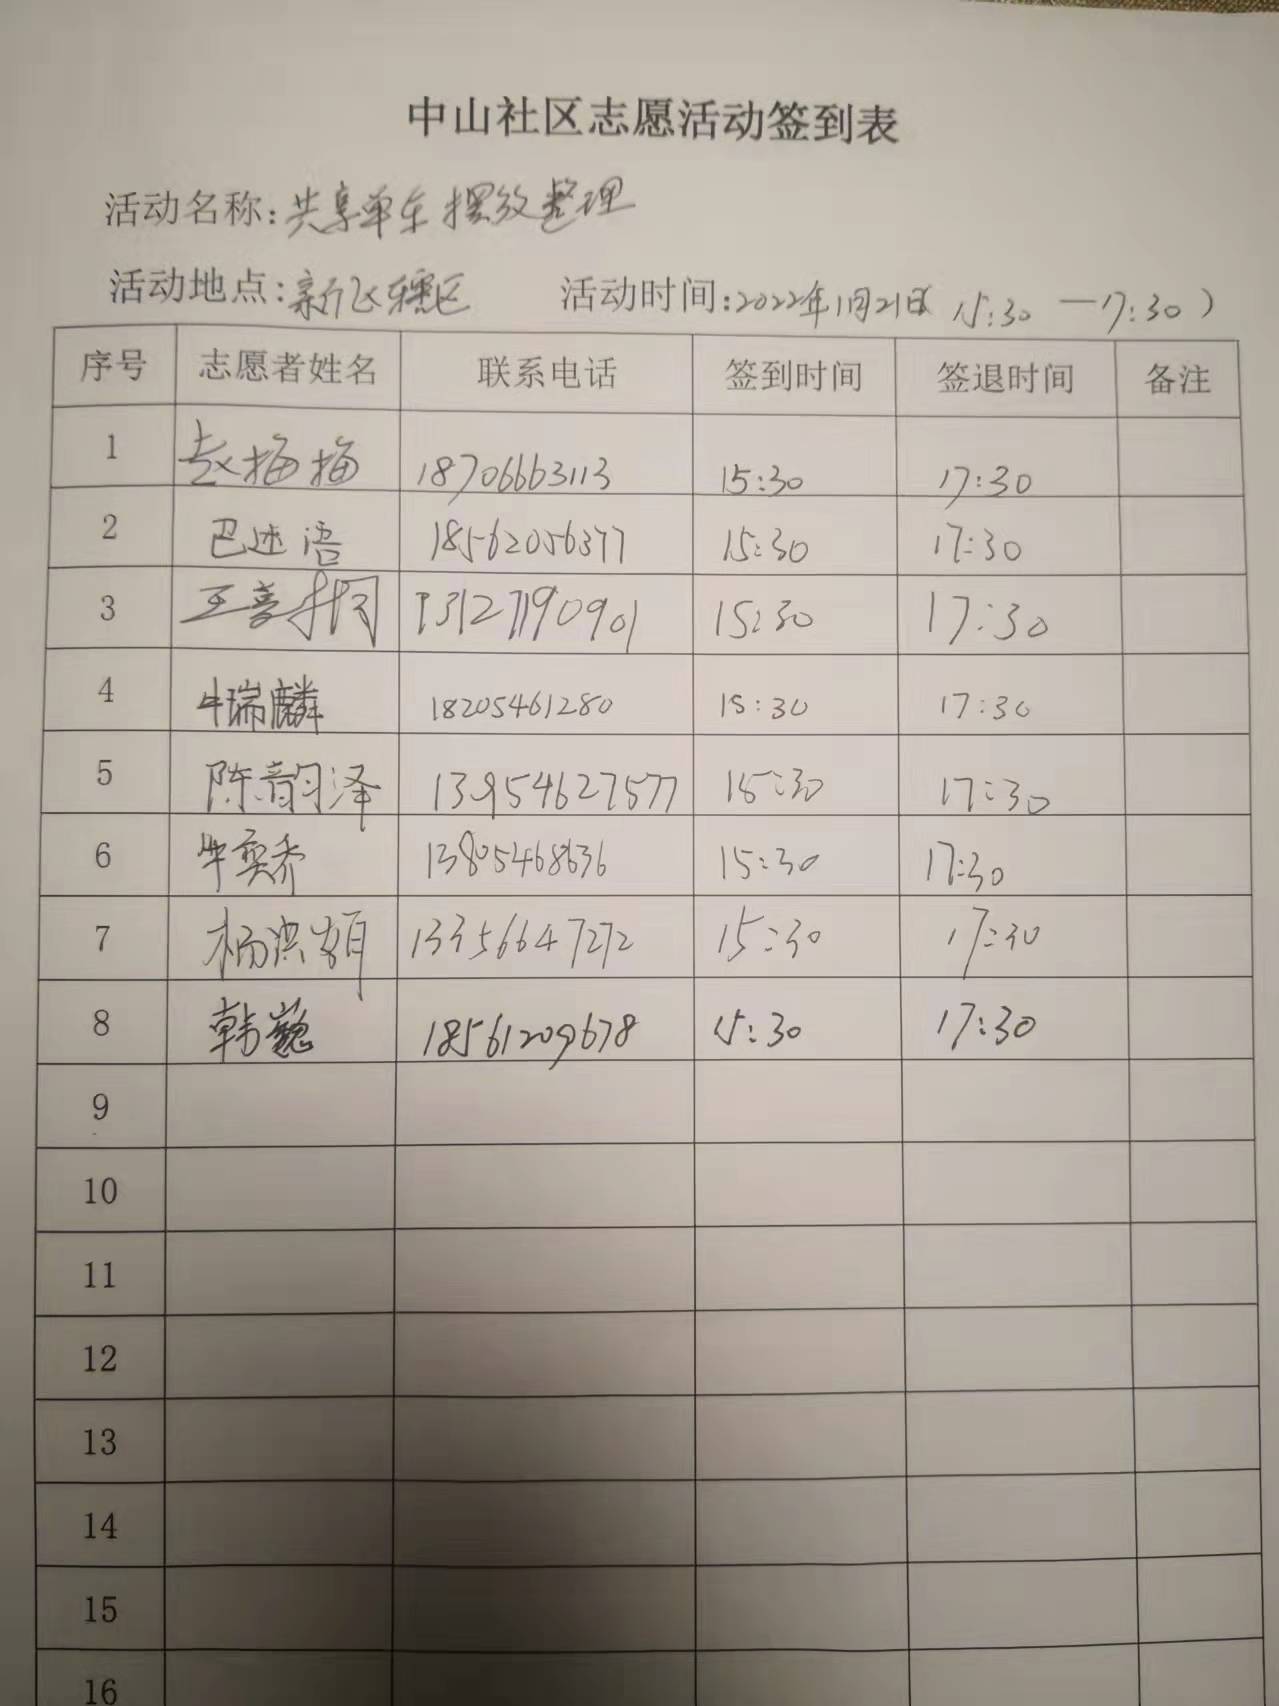 中山社区志愿活动签到表
活动名称:共享单车摆放整理
活动地点:新飞辖区 活动时间:2022年1月21日(15:30—17:30)
序号 志愿者姓名 联系电话 签到时间 签退时间 备注
1 赵梅梅 18706663113 15:30 17:30
2 巴述语 18562056377 15:30 17:30
3 王喜 13127190901 15:30 17:30
4 牛瑞麟 18205461280 15:30 17:30
5 陈韵泽 13954627577 15:30 17:30
6 牛奕乔 13805468636 15:30 17:30
7 杨洪 13356647272 15:30 17:30
8 韩巍 18561209678 15:30 17:30
9
10
11
12
13
14
15
16